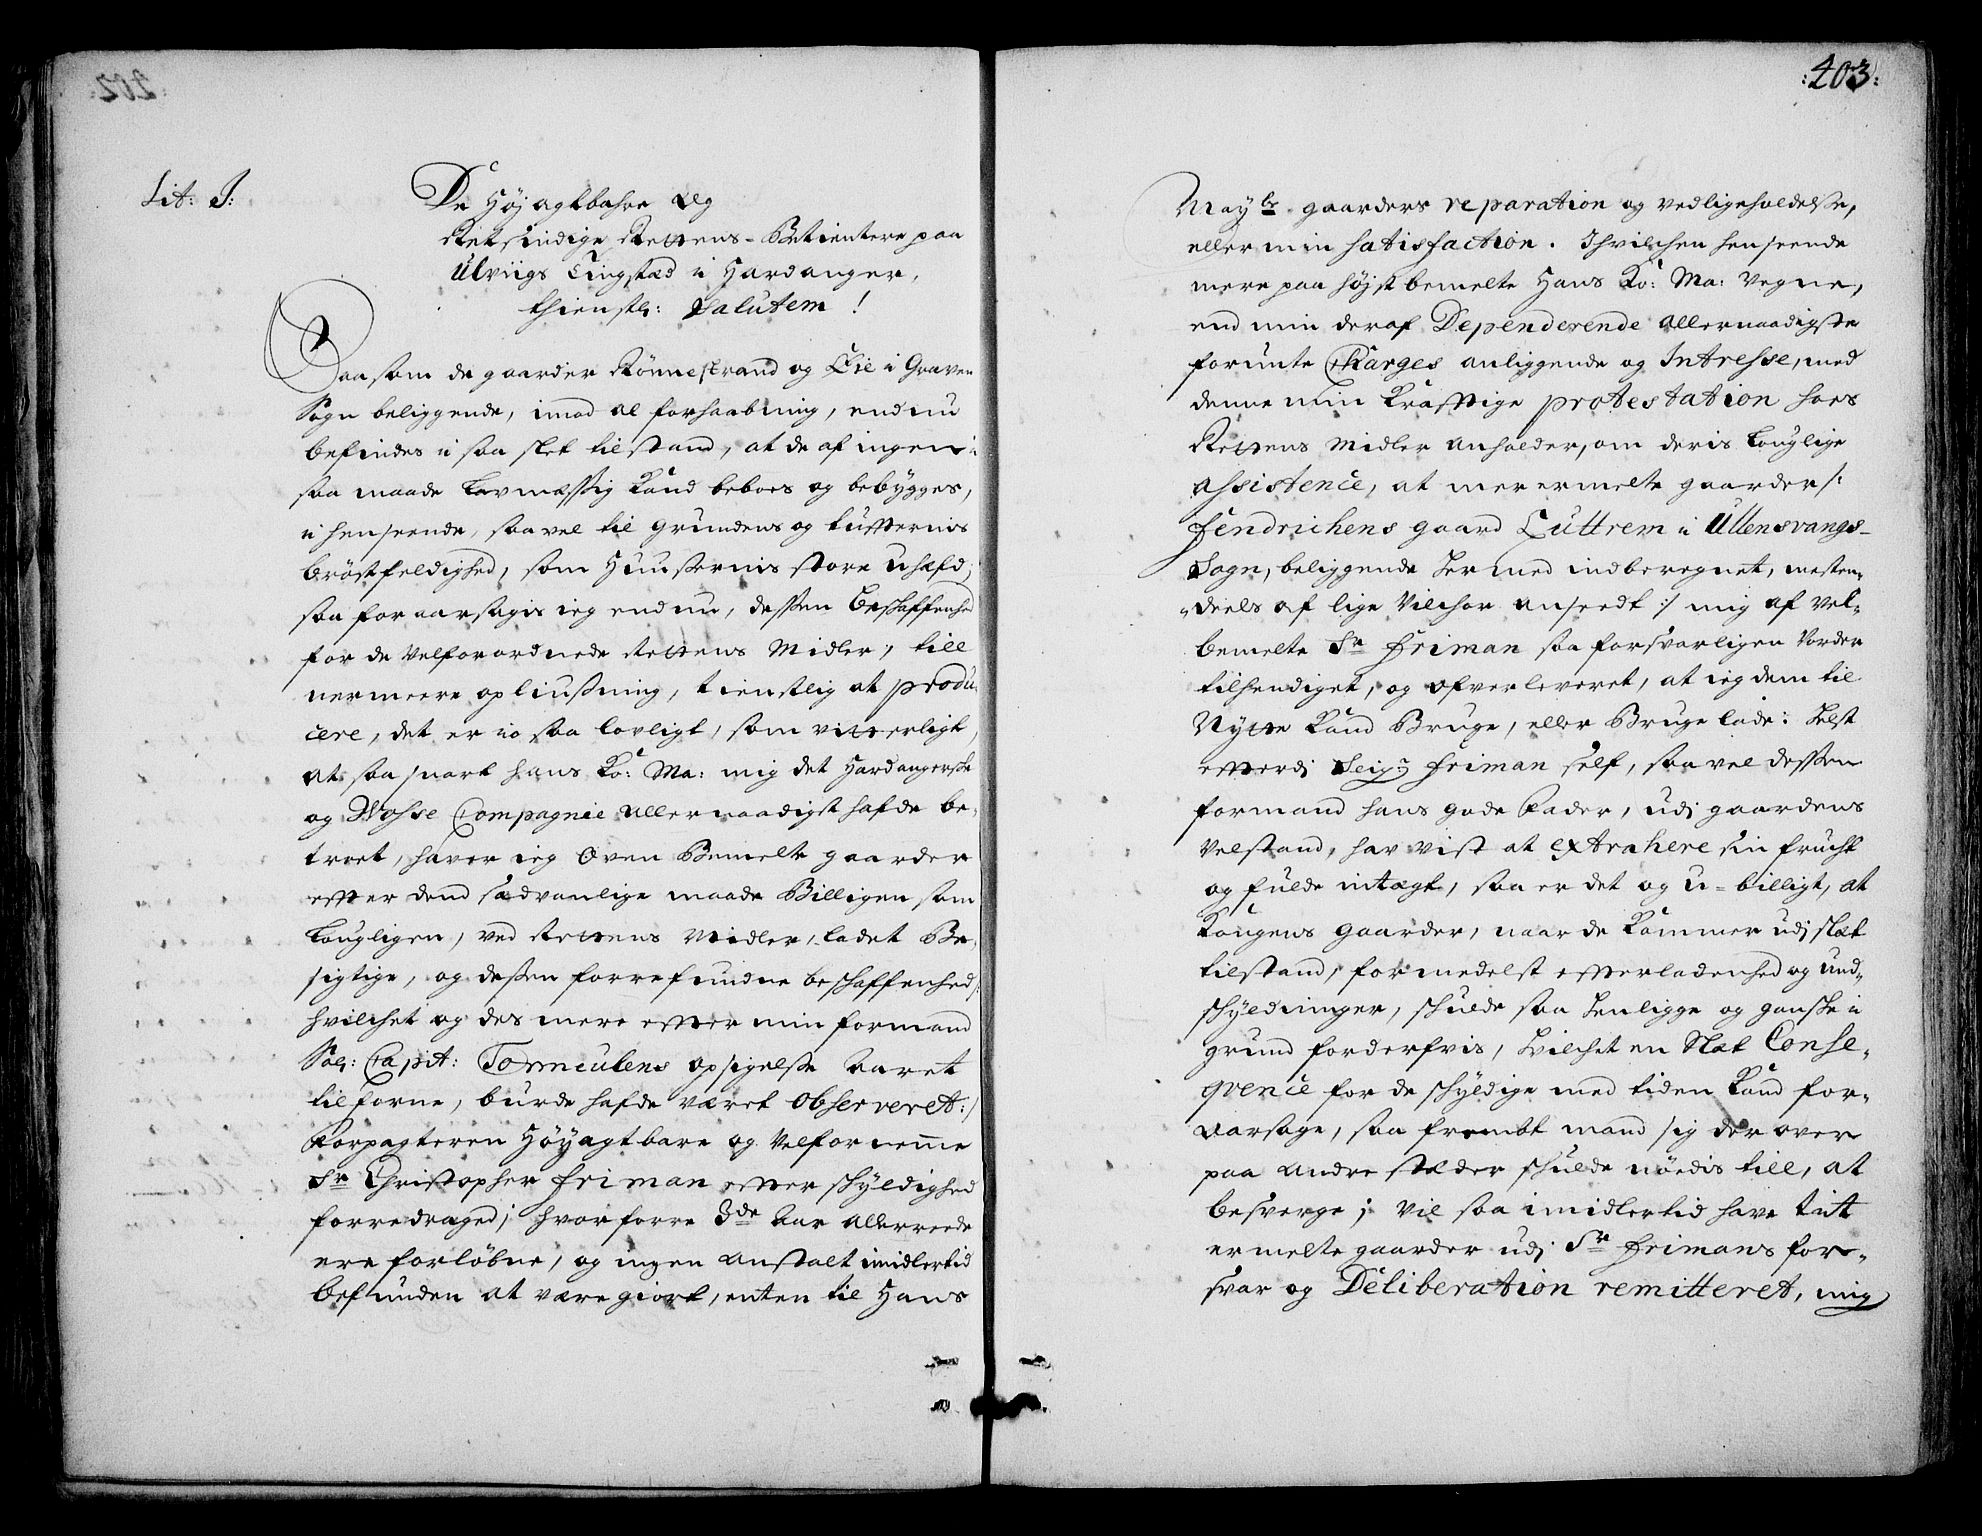 Lit: J:
De Höjagtbahre Og
Retsindige Rettens-Betientere paa
Ulviigs Tingsted i Hardanger,
thienstl: Salutem!
Saasom de gaarder Rönnestrand og Eie i Graven
Sogn beliggende, imod al forhaabning, endnu
befindes i saa slet tilstand, at de af ingen i
saa maade Lovmæssig kand beboes og bebygges,
i henseende, saavel til grundens og tufternis
bröstfeldighed, som Huusernis store uhæfd;
saa foraarsagis ieg endnu, dessen beskaffenhed
for de velforordnede Rettens Midler, till
nermeere opliussning, tienstlig at produ-
cere, det er io saa lovligt, som vitterligt,
at saa snart hans Ko: Ma: mig det Hardangerske
og Vosse Compagnie allernaadigst hafde be-
troet, haver ieg Oven Bemelte gaarder
efter dend sædvanlige maade Billigen som
Lougligen, ved Rettens Midler, ladet Be-
sigtige, og dessen forrefundne beskaffenhed /:
hvilchet og des mere efter min formand
Sal: Capit: Tormeulens opsigelsse Aaret
tilforne, burde hafde været Observeret: /
Forpagteren Höyagtbare og Velfornemme
Sr Christopher Friman efter skyldighed
forredraged; hvorforre 3de Aar Allerreede
ere forlöbne, og ingen Anstalt imidlertid
befunden at være giort, enten til Hans
:203:
Mayts gaarders reparation og vedligeholdelsse,
eller min Satisfaction. Jhvilchen henseende
mere paa höjstbemelte Hans Ko: Ma: Vegne,
end min deraf Dependerende Allernaadigste
forunte Charges anliggende og Intresse, med
denne min kraftige protestation hoes
Rettens Midler anholder, om deris Louglige
Assistence, at merermelte gaarder /:
Fendrichens gaard Luttrem i Ullensvangs-
Sogn, beliggende her med indberegnet, mesten-
deels af lige Vilchor anseedt :/ mig af Vel-
bemelte Sr Friman saa forsvarligen Vorder
tilhendiget, og ofverleveret, at ieg dem til
Nytte kand Bruge, eller Bruge lade: Helst
efterdj Seigr Friman self, saavel dessen
formand hans gode Fader, udj gaardens
velstand, har vist at extrahere sin frucht
og fulde intægt, saa er det og u-billigt, at
Kongens Gaarder, naar de kommer udj slæt
tilstand, formedelst efterladenhed og und-
skyldninger, skulde saa henligge og ganske i
grund forderfvis, hvilchet en Slæt Conse-
qvence for de skyldige med tiden kand for-
Aarsage, saa frembt mand sig der over
paa andre stæder skulde nöedis till, at
besverge; Vil saa imidlertid have tit
ermelte gaarder udj Sr Frimans for-
svar og Deliberation remitteret, mig